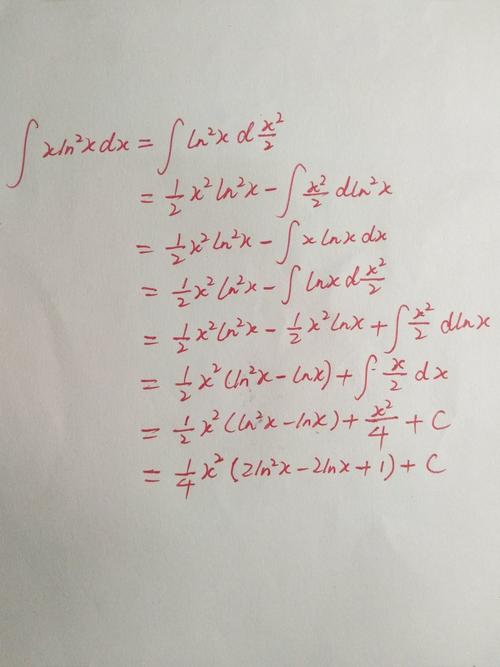 ∫ x ln²x dx = ∫ ln²x d x²/2
= 1/2 x² ln²x − ∫ x²/2 d ln²x
= 1/2 x² ln²x − ∫ x ln x dx
= 1/2 x² ln²x − ∫ ln x d x²/2
= 1/2 x² ln²x − 1/2 x² ln x + ∫ x²/2 d ln x
= 1/2 x² (ln²x − ln x) + ∫ x/2 dx
= 1/2 x² (ln²x − ln x) + x²/4 + C
= 1/4 x² (2ln²x − 2ln x + 1) + C